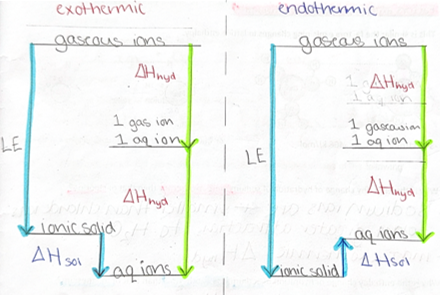 exothermic
gaseous ions
ΔHhyd
1 gas ion
1 aq ion
LE
ΔHhyd
ionic solid
ΔHsol
aq ions
endothermic
gaseous ions
ΔHhyd
1 gaseous ion
1 aq ion
LE
ΔHhyd
aq ions
ΔHsol
ionic solid